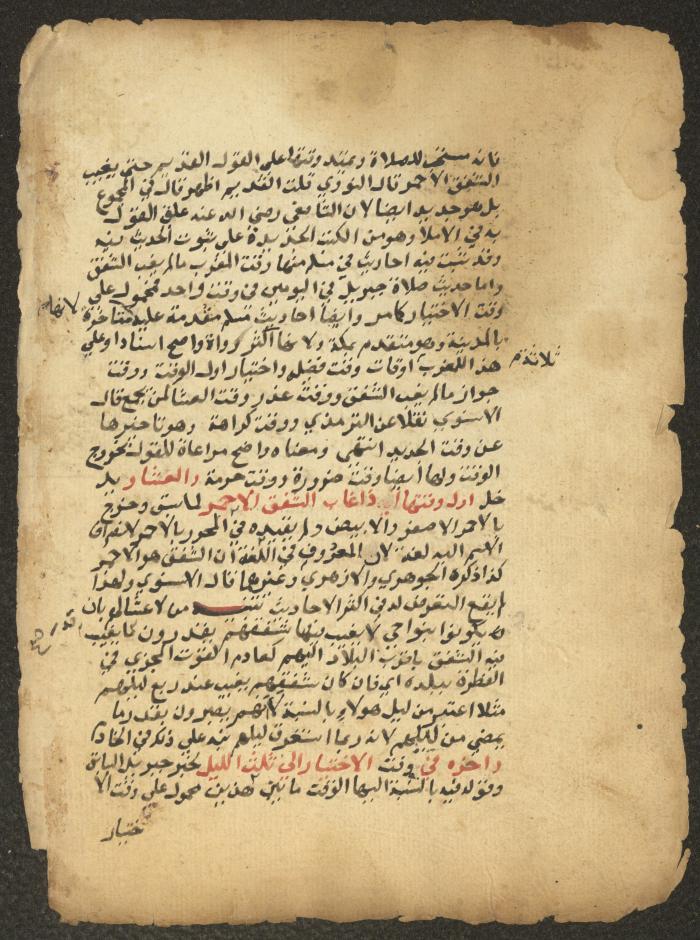 فانه مستحب للصلاة ويمتد وقتها على القول القديم حتى يغيب
الشفق الاحمر قال النووي قلت القديم اظهر قال في المجموع
بل هو جديد ايضا لان الشافعي رضي الله عنه علق القول
به في الاملا وهو من الكتب الجديدة على ثبوت الحديث فيه
وقد ثبت فيه احاديث في مسلم منها وقت المغرب ما لم يغب الشفق
واما حديث صلاة جبريل في اليومين في وقت واحد فمحمول على
وقت الاختيار كما مر وايضا احاديث مسلم مقدمة عليه متاخرة لانها
بالمدينة وهو متقدم بمكة ولانها اكثر رواة واصح اسنادا وعلى
هذا للمغرب اوقات وقت فضيلة واختيار اول الوقت ووقت
جواز ما لم يغب الشفق ووقت عذر وقت العشا لمن يجمع قال
الاسنوي نقلا عن الترمذي ووقت كراهة وهو تاخيرها
عن وقت الجديد انتهى ومعناه واضح مراعاة للقول بخروج
الوقت ولها ايضا وقت ضرورة ووقت حرمة والعشا يد
خل اول وقتها اذا غاب الشفق الاحمر لما سبق وخرج
بالاحمر الاصفر والابيض ولم يقيده في المحرر بالاحمر لانصراف
الاسم اليه لغة لان المعروف في اللغة ان الشفق هو الاحمر
كذا ذكره الجوهري والازهري وغيرهما قال الاسنوي ولهذا
لم يقع التعرض له في اكثر الاحاديث من لا عشا لهم بان
يكونوا بنواحي لا يغيب فيها شفقهم يقدرون ما يغيب
فيه الشفق باقرب البلاد اليهم كعادم القوت المجزي في
الفطرة ببلده اي فان كان شفقهم يغيب عند ربع ليلهم
مثلا اعتبر من ليل هولاء بالنسبة لانهم يصيرون بقدر ما
يمضي من ليلهم لانه ربما استغرق ليلهم نبه على ذلك في الخادم
واخره في وقت الاختيار الى ثلث الليل لخبر جبريل السابق
وقوله فيه بالنسبة اليها الوقت ما بين هذين محمول على وقت الا
ختيار
ثلاثة